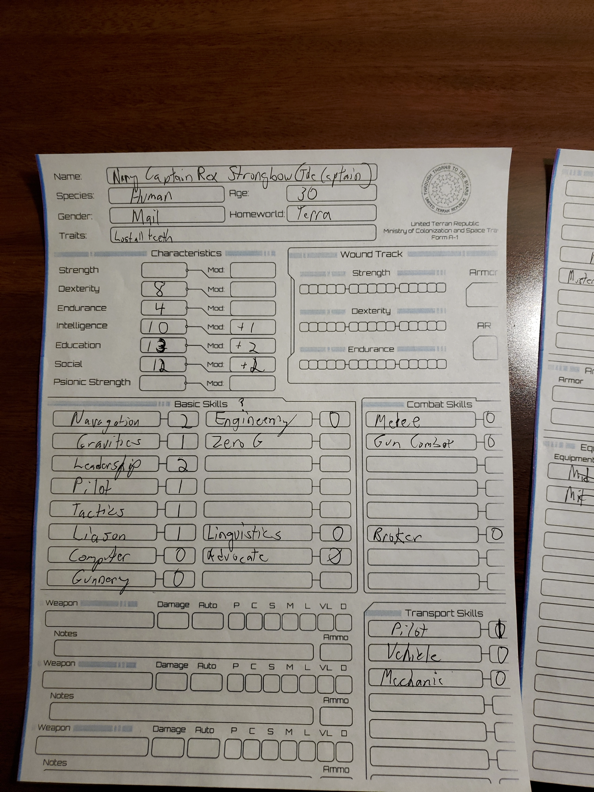 Name: Navy Captain Rex Strongbow (Tde Captain)
Species: Human Age: 30
Gender: Mail Homeworld: Terra
Traits: Lost all teeth
THROUGH THORNS TO THE STARS
UNITED TERRAN REPUBLIC
United Terran Republic
Ministry of Colonization and Space Tra
Form A-1
Characteristics
Strength Mod
Dexterity 8 Mod
Endurance 4 Mod
Intelligence 10 Mod +1
Education 13 Mod +2
Social 12 Mod +2
Psionic Strength Mod
Wound Track
Strength
Dexterity
Endurance
Armor
AR
Basic Skills ?
Navagation 2 Engineeny 0
Gravitics 1 Zero G
Leadership 2
Pilot 1
Tactics 1
Liason 1 Linguistics 0
Computer 0 Advocate 0
Gunnery 0
Combat Skills
Melee 0
Gun Combat 0
Broker 0
Weapon Damage Auto P C S M L VL D
Notes Ammo
Weapon Damage Auto P C S M L VL D
Notes Ammo
Weapon Damage Auto P C S M L VL D
Notes Ammo
Transport Skills
Pilot
Vehicle 0
Mechanic 0
Armor
Equ
Equipment